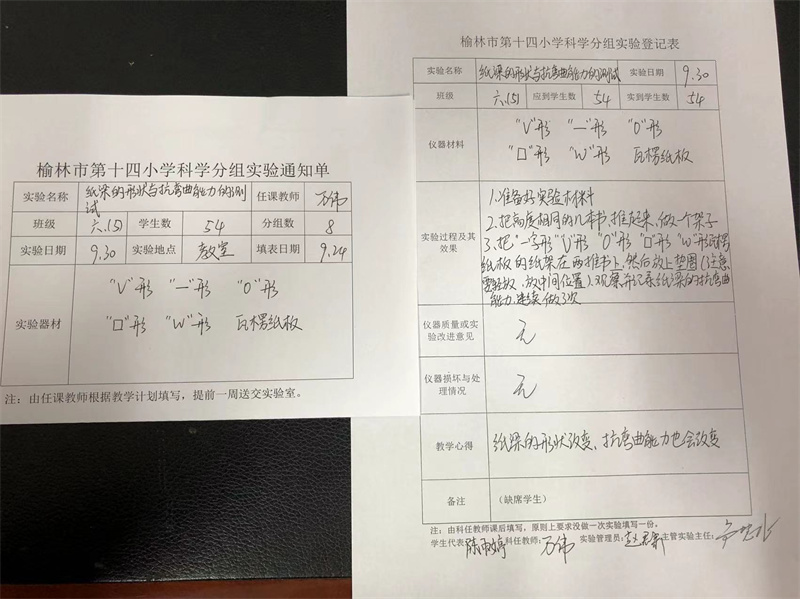 榆林市第十四小学科学分组实验通知单
实验名称 纸梁的形状与抗弯曲能力的测试 任课教师 万伟
班级 六.(5) 学生数 54 分组数 8
实验日期 9.30 实验地点 教室 填表日期 9.24
实验器材 "V"形 "一"形 "O"形
"口"形 "W"形 瓦楞纸板
注：由任课教师根据教学计划填写，提前一周送交实验室。
榆林市第十四小学科学分组实验登记表
实验名称 纸梁的形状与抗弯曲能力的测试 实验日期 9.30
班级 六.(5) 应到学生数 54 实到学生数 54
仪器材料 "V"形 "一"形 "O"形
"口"形 "W"形 瓦楞纸板
实验过程及其效果
1.准备好实验材料
2.把高度相同的几本书,推起来,做一个架子
3.把"一"字形"V"形"O"形"口"形"W"形瓦楞
纸板的纸架在两推书上,然后放上垫圈(注意
要轻放,放中间位置).观察并记录纸梁的抗弯曲
能力,连续做了次
仪器质量或实验改进意见 无
仪器损坏与处理情况 无
教学心得 纸梁的形状改变、抗弯曲能力也会改变
备注 （缺席学生）
注：由科任教师课后填写，原则上要求没做一次实验填写一份。
学生代表: 陈雨婷 科任教师: 万伟 实验管理员: 主管实验主任: